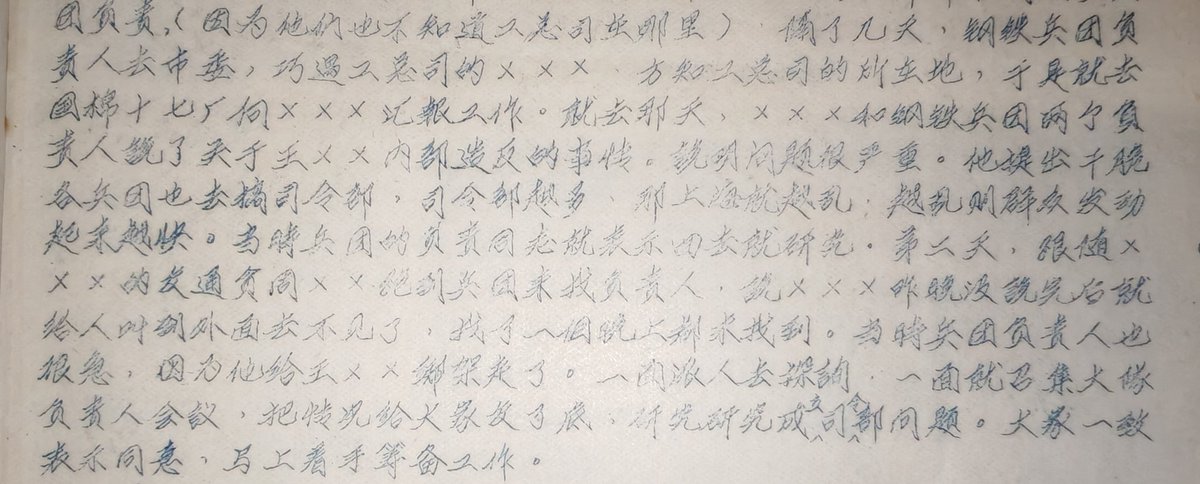 团负责,(因为他们也不知道工总司在那里) 隔了几天,钢铁兵团负
责人去市委,巧遇工总司的×××.方知工总司的所在地,于是就去
国棉十七厂向×××汇報工作。就去那天,×××和钢铁兵团两个负
责人說了关于王××内部造反的事情。說明问题很严重。他提出干脆
各兵团也去搞司令部,司令部越多.那上海就越乱.越乱则群众发动
起来越快。当時兵团的负责同志就表示回去就研究。第二天,跟随×
××的交通員周××跑到兵团来找负责人,說×××昨晚没說完后就
给人叫到外面去不见了,找了一個晚上都未找到。当時兵团负责人也
很急,因为他给王××绑架走了。一面派人去探詢.一面就召集大隊
负责人会议,把情况给大家交了底,研究研究成立司令部问题。大家一致
表示同意,马上着手筹备工作。